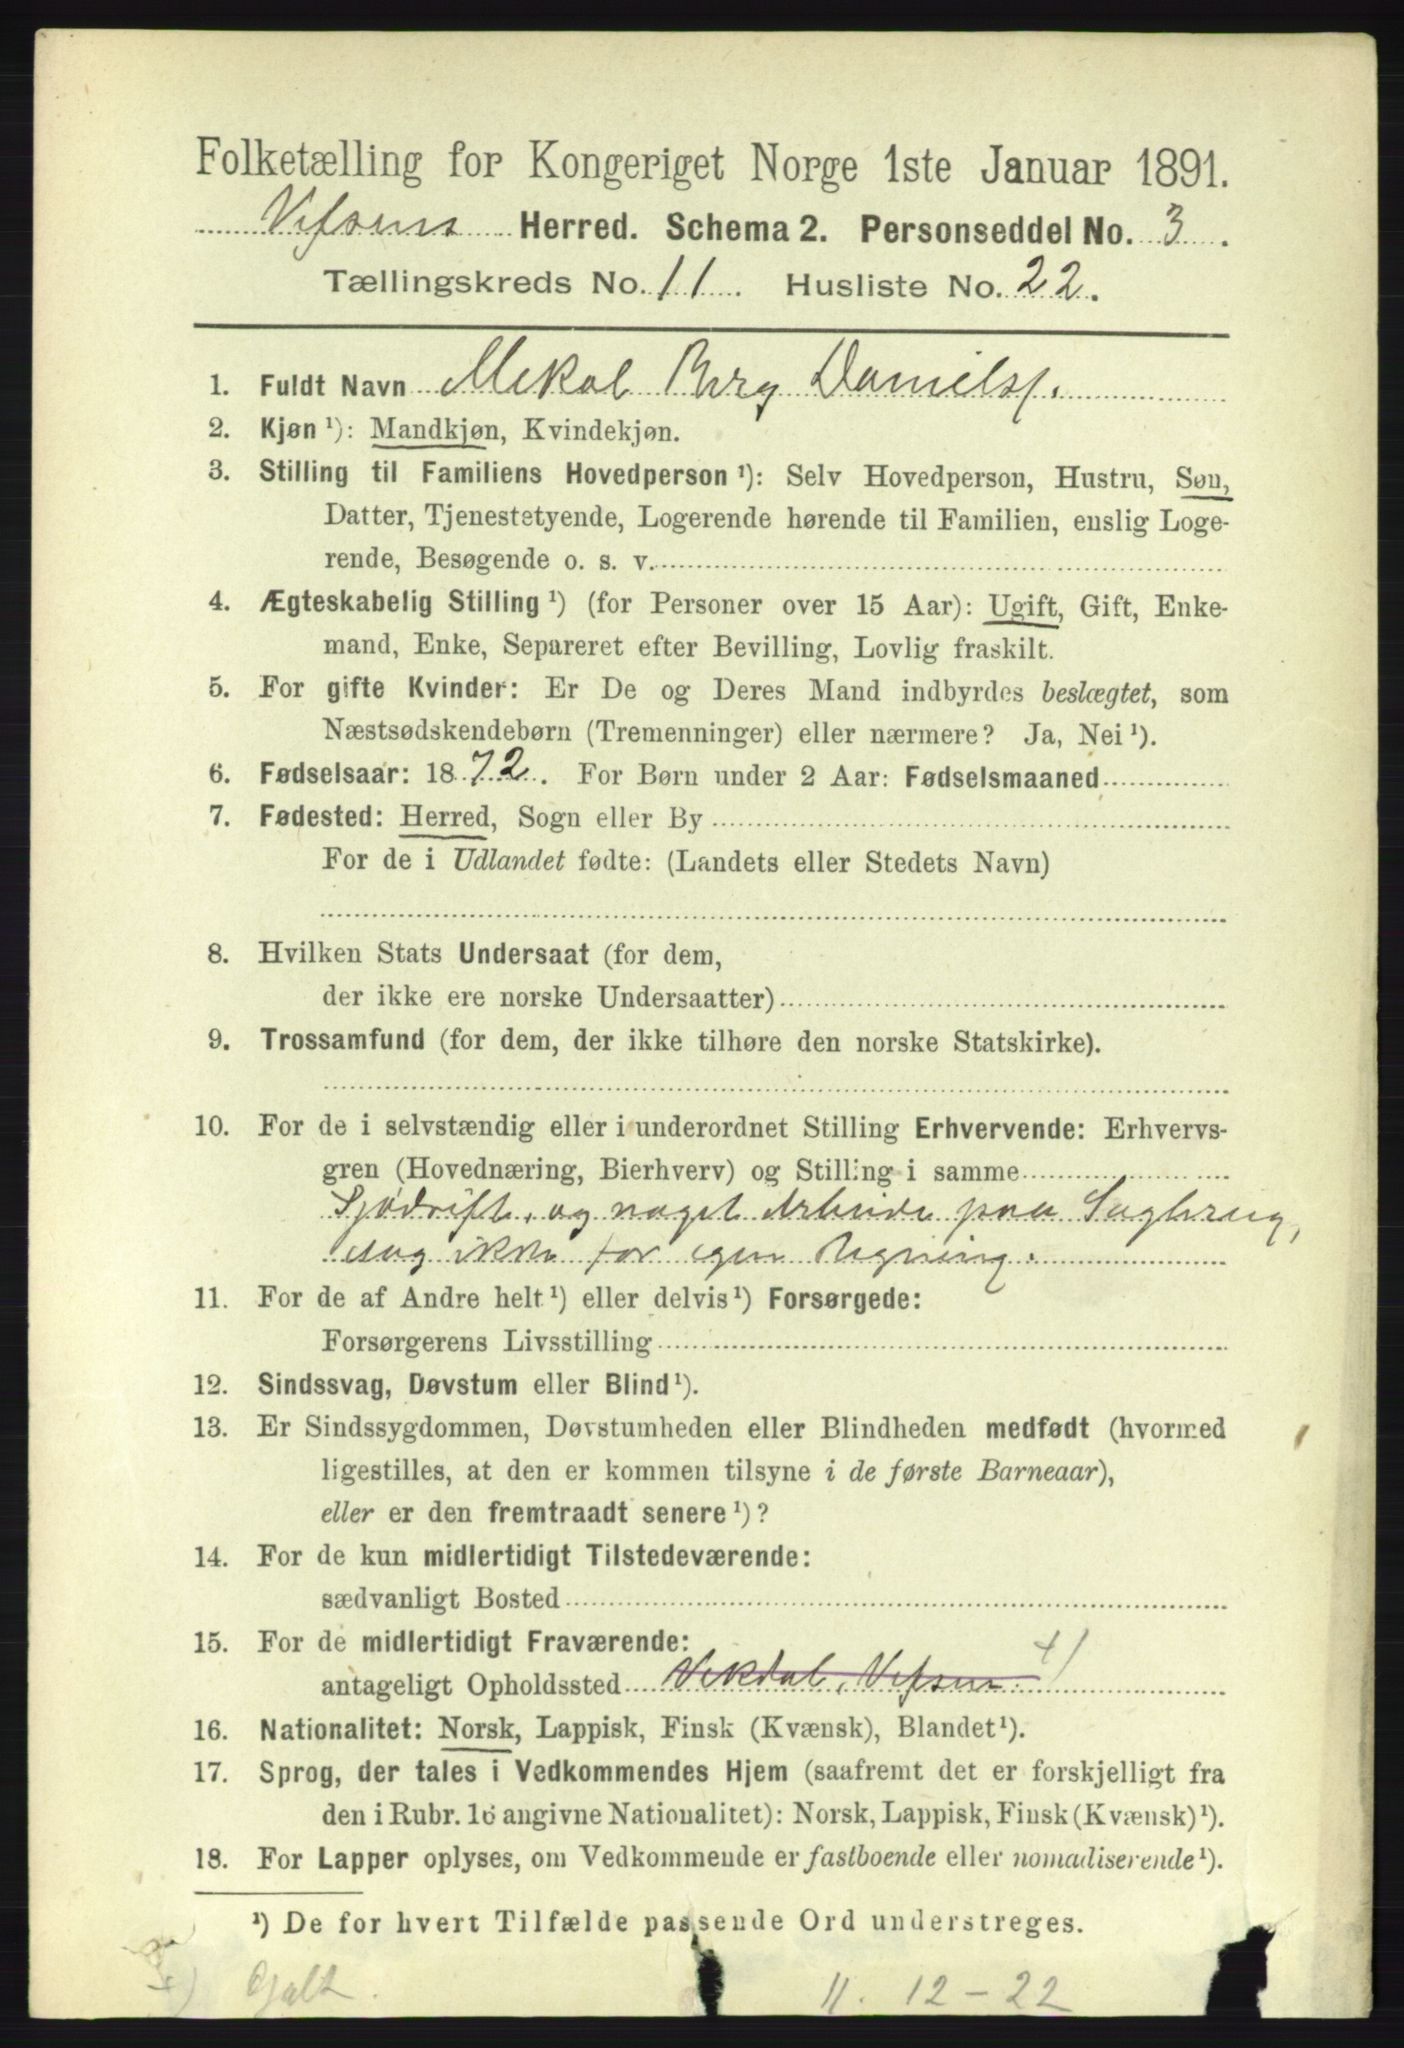 Folketælling for Kongeriget Norge 1ste Januar 1891.
Vefsens Herred. Schema 2. Personseddel No. 3.
Tællingskreds No. 11. Husliste No. 22.
1. Fuldt Navn Mikal Berg Daniels.
2. Kjøn ¹): Mandkjøn, Kvindekjøn.
3. Stilling til Familiens Hovedperson ¹): Selv Hovedperson, Hustru, Søn,
Datter, Tjenestetyende, Logerende hørende til Familien, enslig Loge-
rende, Besøgende o. s. v.
4. Ægteskabelig Stilling ¹) (for Personer over 15 Aar): Ugift, Gift, Enke-
mand, Enke, Separeret efter Bevilling, Lovlig fraskilt.
5. For gifte Kvinder: Er De og Deres Mand indbyrdes beslægtet, som
Næstsødskendebørn (Tremenninger) eller nærmere? Ja, Nei ¹).
6. Fødselsaar: 1872. For Børn under 2 Aar: Fødselsmaaned
7. Fødested: Herred, Sogn eller By
For de i Udlandet fødte: (Landets eller Stedets Navn)
8. Hvilken Stats Undersaat (for dem,
der ikke ere norske Undersaatter)
9. Trossamfund (for dem, der ikke tilhøre den norske Statskirke).
10. For de i selvstændig eller i underordnet Stilling Erhvervende: Erhvervs-
gren (Hovednæring, Bierhverv) og Stilling i samme
Sjödrift, og noget Arbeide paa Sagbrug,
dog ikke for egen Regning.
11. For de af Andre helt ¹) eller delvis ¹) Forsørgede:
Forsørgerens Livsstilling
12. Sindssvag, Døvstum eller Blind ¹).
13. Er Sindssygdommen, Døvstumheden eller Blindheden medfødt (hvormed
ligestilles, at den er kommen tilsyne i de første Barneaar),
eller er den fremtraadt senere ¹)?
14. For de kun midlertidigt Tilstedeværende:
sædvanligt Bosted
15. For de midlertidigt Fraværende:
antageligt Opholdssted Vikdal, Vefsen. +)
16. Nationalitet: Norsk, Lappisk, Finsk (Kvænsk), Blandet ¹).
17. Sprog, der tales i Vedkommendes Hjem (saafremt det er forskjelligt fra
den i Rubr. 16 angivne Nationalitet): Norsk, Lappisk, Finsk (Kvænsk) ¹).
18. For Lapper oplyses, om Vedkommende er fastboende eller nomadiserende ¹).
¹) De for hvert Tilfælde passende Ord understreges.
+) Galt. 11. 12-22